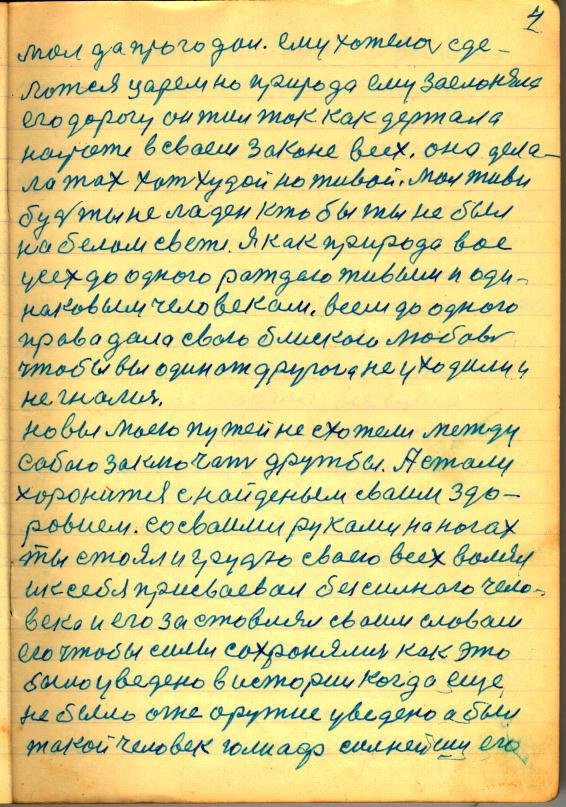 4
мал да прогодал. ему хотелось сде-
латся царем но природа ему заслоняла
его дорогу он жил так как держала
народ в сваем законе всех. она дела-
ла так хат худой но живой. мол живи
будь ты не ладен кто бы ты не был
на белом свете. Я как природа вас
усех до одного раждаю живым и оди-
наковым человекам. всем до одного
права дала сваю блискою любовь
чтобы вы один от другога не уходили и
не гнался.
но вы маею путей не схотели между
сабою заключать дружбы. А стали
хоронится с найденым сваим здо-
ровием. со сваими руками на ногах
ты стоял и грудью сваею всех валял
и к себя присваевал безсилнаго чело-
века и его заставлял сваим словам
его чтобы силы сохронялия как это
было уведено в истории когда еще
не было огне оружие уведено а был
такой человек голиаф силнейшу его